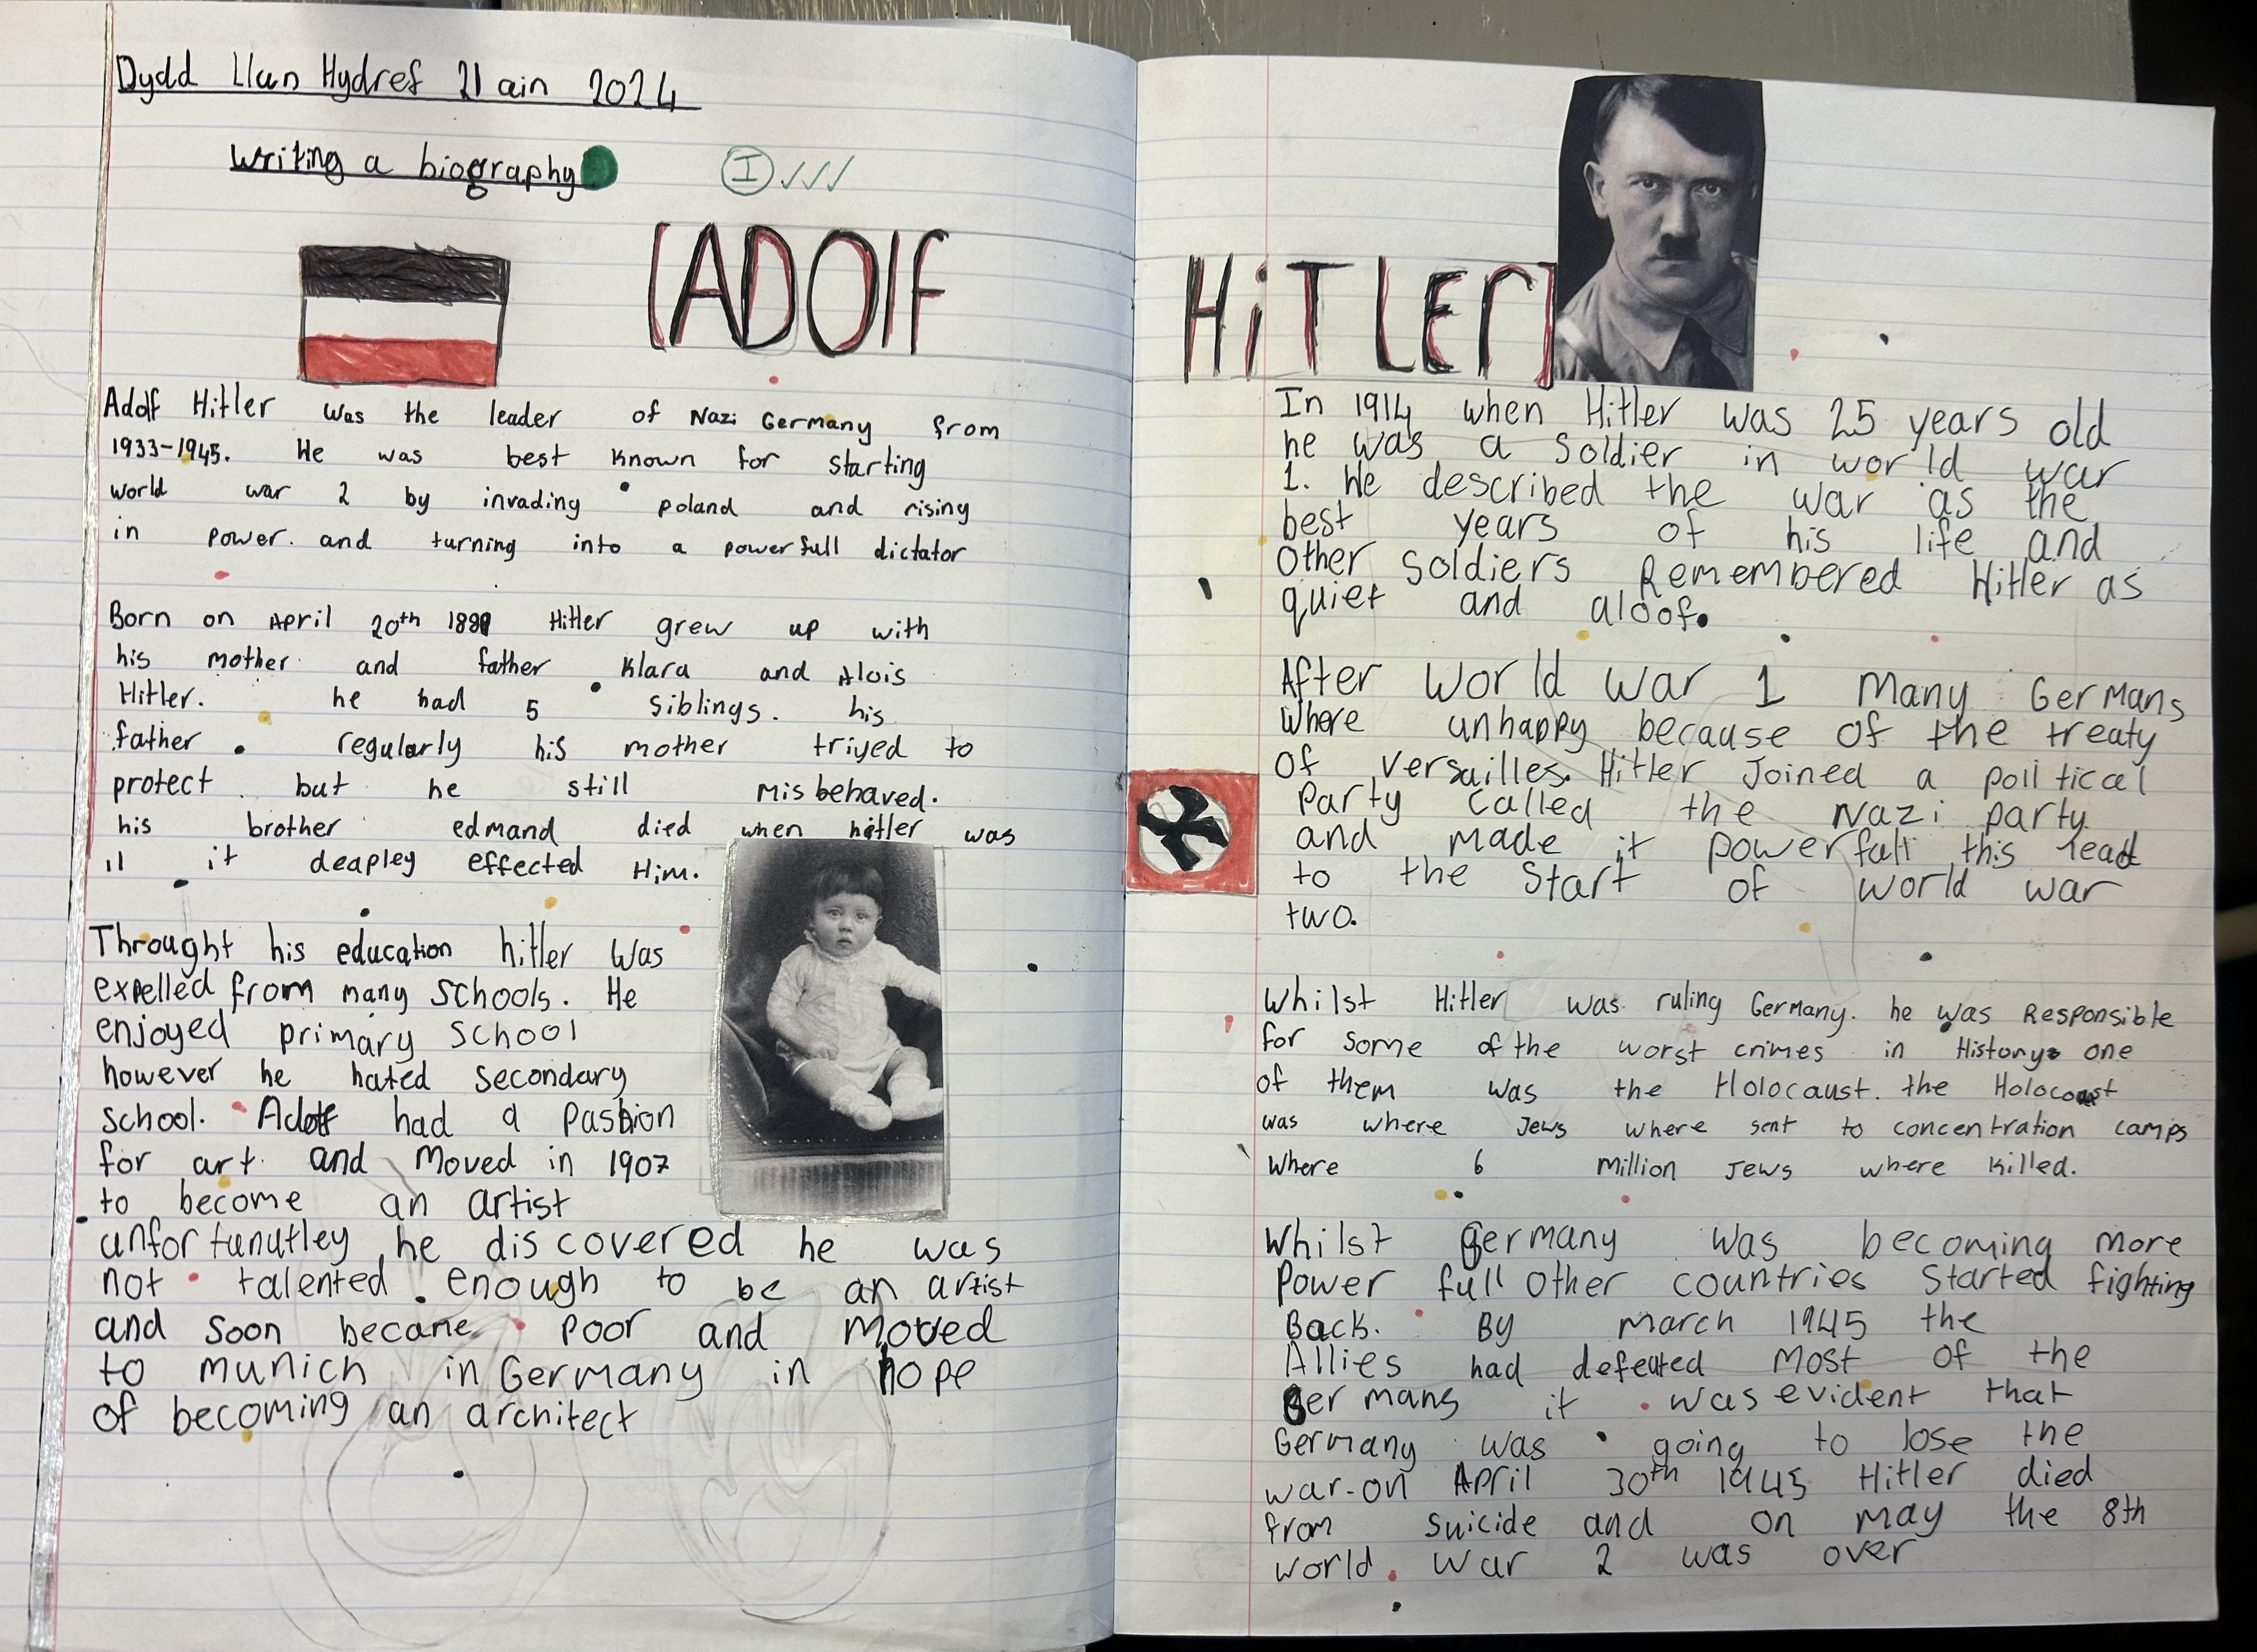 Dydd Llun Hydref 21 ain 2024
Writing a biography
I
[ADOlf
Adolf Hitler was the leader of Nazi Germany from
1933-1945. He was best known for starting
world war 2 by invading poland and rising
in power. and turning into a powerfull dictator
Born on April 20th Hitler grew up with
his mother and father Klara and Alois
Hitler. he had 5 siblings. his
father regularly his mother triyed to
protect but he still misbehaved.
his brother edmand died when hitler was
11 it deapley effected Him.
Throught his education hitler was
expelled from many schools. He
enjoyed primary school
however he hated secondary
school. Adolf had a
for art and moved in 1907
to become an artist
unfortunutley he discovered he was
not talented enough to be an artist
and soon became poor and moved
to munich in Germany in hope
of becoming an architect
HiTLEr]
In 1914 when Hitler was 25 years old
he was a soldier in world war
1. He described the war as the
best years of his life and
other soldiers Remembered Hitler as
quiet and aloof.
After world war 1 many Germans
where unhappy because of the treaty
of versailles. Hitler Joined a poltical
Party called the Nazi party
and made it powerfull this lead
to the start of world war
two.
Whilst Hitler was ruling Germany. he was Responsible
for some of the worst crimes in History one
of them was the Holocaust. the Holocaust
was where Jews where sent to concentration camps
where 6 million Jews where killed.
Whilst Germany was becoming more
Power full other countries started fighting
Back. By march 1945 the
Allies had defeated most of the
Germans it was evident that
Germany was going to lose the
war-on April 30th 1945 Hitler died
from suicide and on may the 8th
world war 2 was over